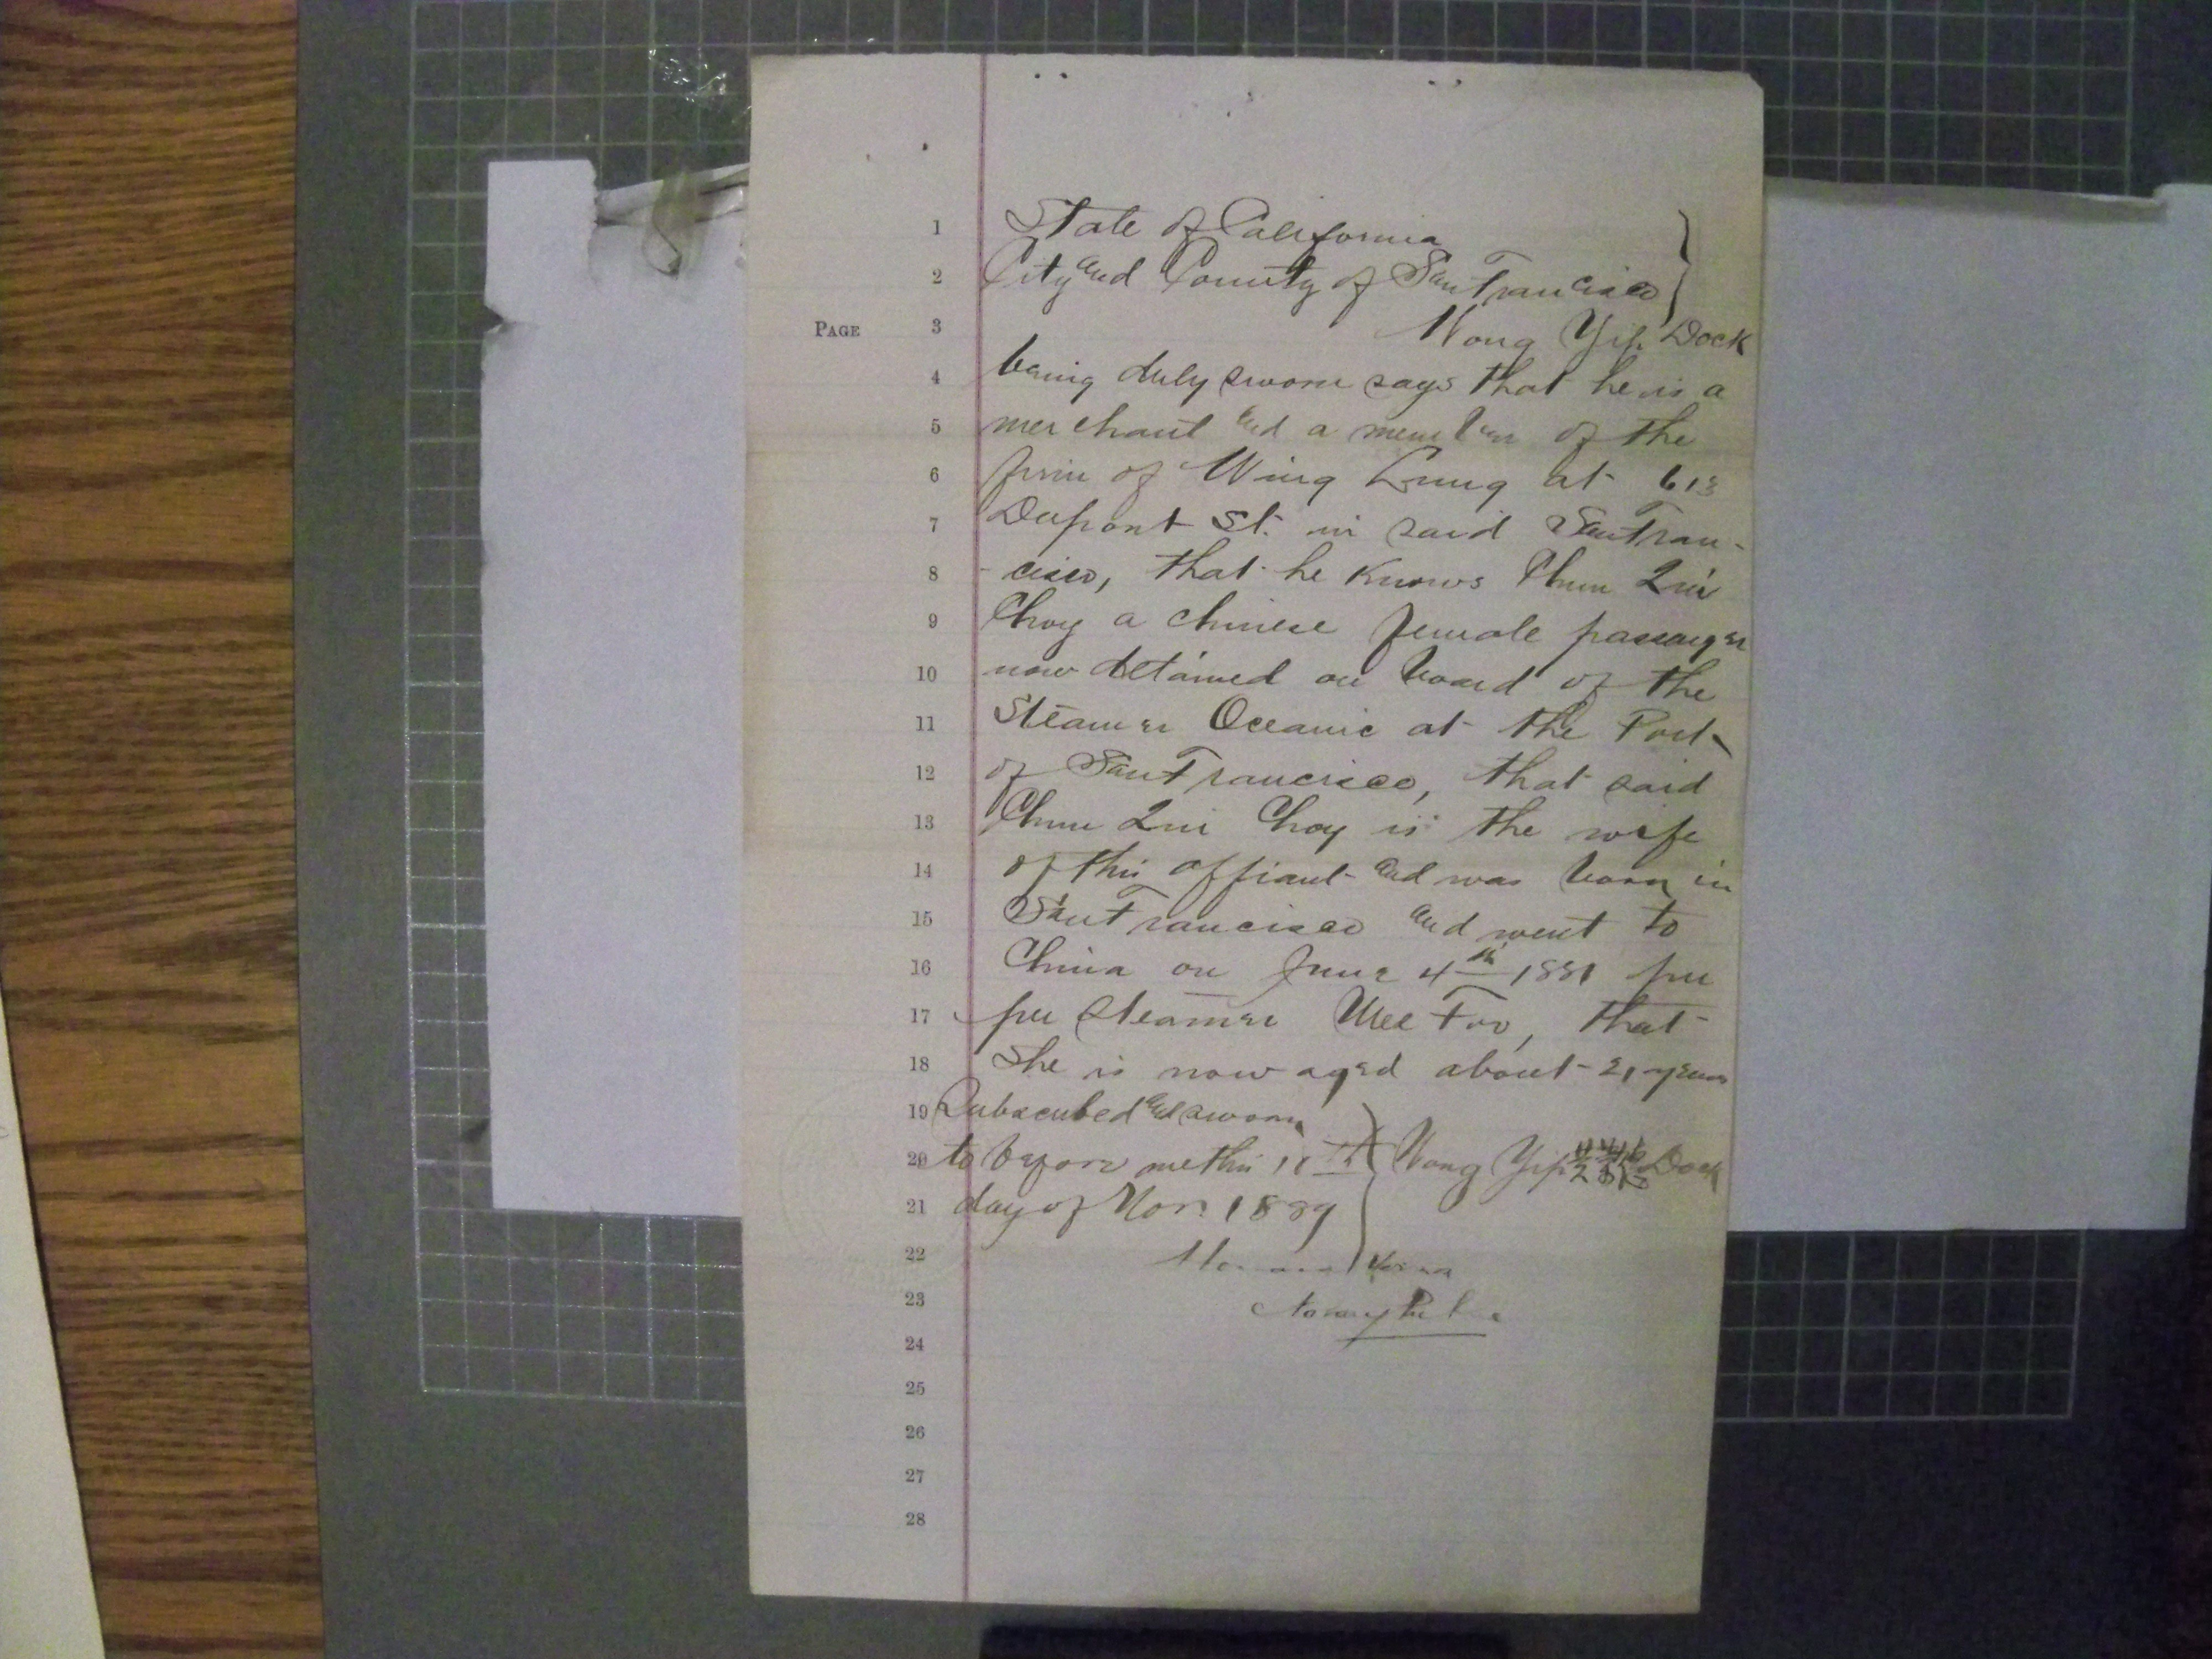 1 State of California
2 City and County of San Francisco
PAGE 3 Wong Yip Dock
4 being duly sworn says that he is a
5 merchant and a member of the
6 firm of Wing Lung at 613
7 Dupont St. in said San Fran-
8 - cisco, that he knows Chun Qui
9 Choy a chinese female passenger
10 now detained on board of the
11 Steamer Oceanic at the Port
12 of San Francisco, that said
13 Chun Qui Choy is the wife
14 of this affiant and was born in
15 San Francisco and went to
16 China on June 4th 1881 per
17 per steamer Mee Foo, that
18 She is now aged about 21 years
19 Subscribed and sworn
20 to before me this th Wong Yip Dock
21 day of Nov. 1889
22
23 Notary Public
24
25
26
27
28